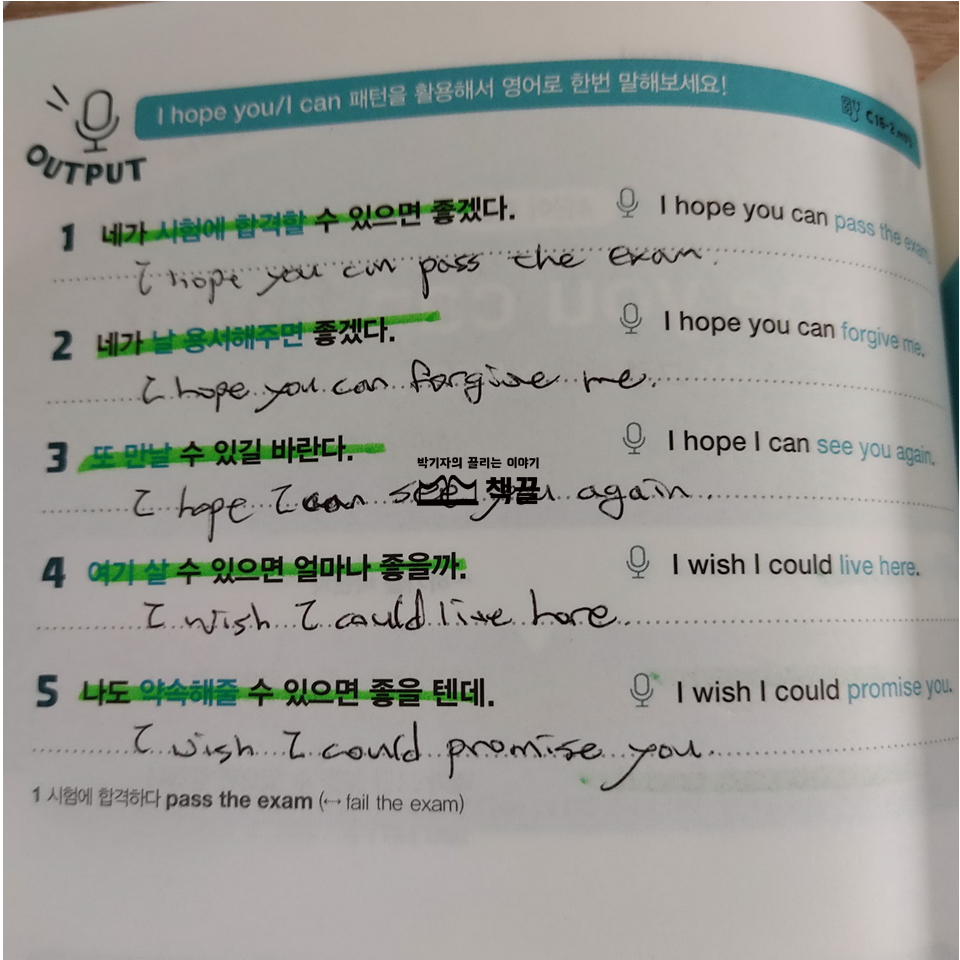 I hope you/I can 패턴을 활용해서 영어로 한번 말해보세요!
C16-2.mp3
OUTPUT
1 네가 시험에 합격할 수 있으면 좋겠다. I hope you can pass the exam.
I hope you can pass the exam.
2 네가 날 용서해주면 좋겠다. I hope you can forgive me.
I hope you can forgive me.
3 또 만날 수 있길 바란다. I hope I can see you again.
박기자의 끌리는 이야기
책끌
I hope I can see you again.
4 여기 살 수 있으면 얼마나 좋을까. I wish I could live here.
I wish I could live here.
5 나도 약속해줄 수 있으면 좋을 텐데. I wish I could promise you.
I wish I could promise you.
1 시험에 합격하다 pass the exam (↔ fail the exam)